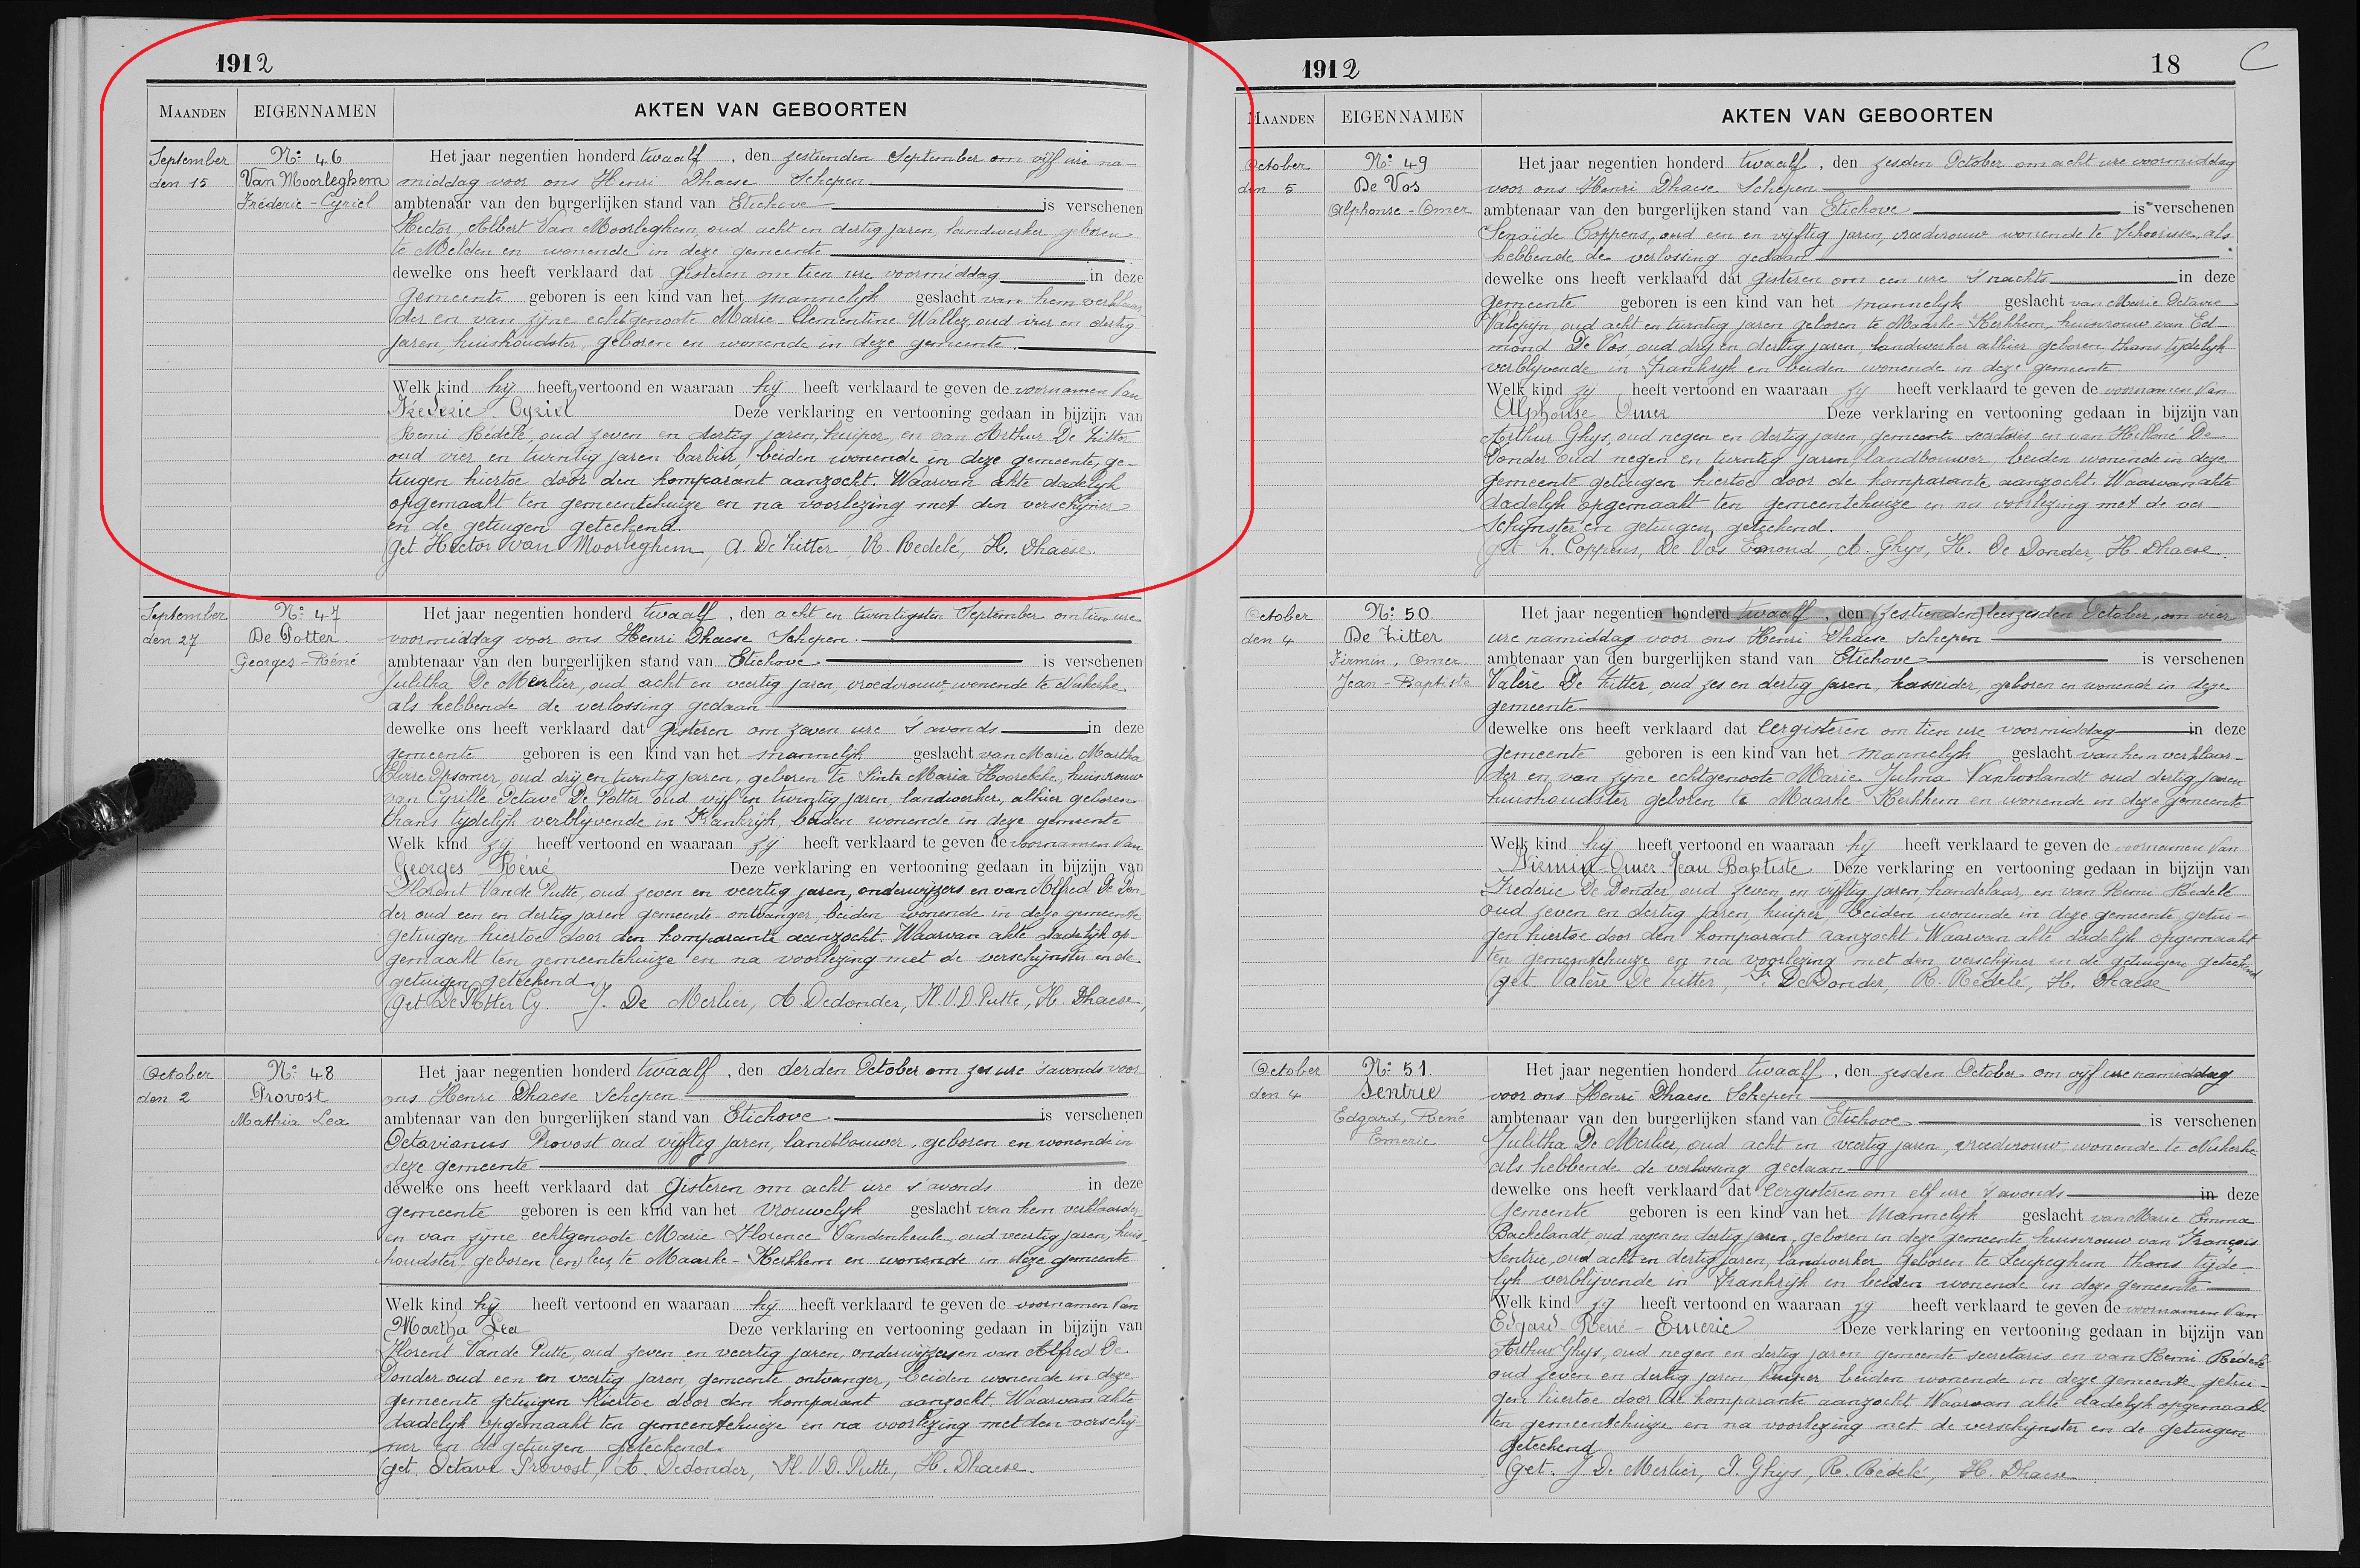 1912
MAANDEN EIGENNAMEN AKTEN VAN GEBOORTEN
September den 15
Nº 46
Van Moorleghem
Fréderic - Cyriel
Het jaar negentien honderd twaalf, den zestienden September om vijf ure na-
middag voor ons Henri Dhaese Schepen
ambtenaar van den burgerlijken stand van Etichove is verschenen
Hector, Albert Van Moorleghem, oud acht en dertig jaren, landwerker geboren
te Melden en wonende in deze gemeente
dewelke ons heeft verklaard dat gisteren om tien ure voormiddag in deze
gemeente geboren is een kind van het mannelijk geslacht van hem verklaar
der en van zijne echtgenoote Marie Clementine Wallez, oud vier en dertig
jaren, huishoudster, geboren en wonende in deze gemeente.
Welk kind hij heeft vertoond en waaraan hij heeft verklaard te geven de voornamen van
Frederic Cyriel Deze verklaring en vertooning gedaan in bijzijn van
Remi Rédelé, oud zeven en dertig jaren, kuiper, en van Arthur De Zitter
oud vier en twintig jaren barbier, beiden wonende in deze gemeente, ge-
tuigen hiertoe door den komparant aanzocht. Waarvan akte dadelijk
opgemaakt ten gemeentehuize en na voorlezing met den verschijner
en de getuigen geteekend.
(get. Hector van Moorleghem, A. De Zitter, R. Redelé, H. Dhaese.
September den 27
Nº 47
De Potter
Georges - Réné
Het jaar negentien honderd twaalf, den acht en twintigsten September om tien ure
voormiddag voor ons Henri Dhaese Schepen.
ambtenaar van den burgerlijken stand van Etichove is verschenen
Julitha De Merlier, oud acht en veertig jaren, vroedvrouw, wonende te Nukerke
als hebbende de verlossing gedaan
dewelke ons heeft verklaard dat gisteren om zeven ure s'avonds in deze
gemeente geboren is een kind van het mannelijk geslacht van Marie Martha
Elvire Opsomer, oud drij en twintig jaren, geboren te Sinte Maria Hoorebeke, huisvrouw
van Cyrille Octave De Potter oud vijf en twintig jaren, landwerker, alhier geboren
thans tijdelijk verblijvende in Frankrijk, beiden wonende in deze gemeente
Welk kind zij heeft vertoond en waaraan zij heeft verklaard te geven de voornamen van
Georges Réné Deze verklaring en vertooning gedaan in bijzijn van
Florent Vande Putte, oud zeven en veertig jaren, onderwijzers en van Alfred De Don-
der oud een en dertig jaren gemeente-ontvanger, beiden wonende in deze gemeente
getuigen hiertoe door den komparante aanzocht. Waarvan akte dadelijk op-
gemaakt ten gemeentehuize en na voorlezing met de verschijnster en de
getuigen geteekend.
(get De Potter Cy. J. De Merlier, A. Dedonder, Fl. V. D. Putte, H. Dhaese,
October den 2
Nº 48
Provost
Martha Lea
Het jaar negentien honderd twaalf, den derden October om zes ure s'avonds voor
ons Henri Dhaese Schepen
ambtenaar van den burgerlijken stand van Etichove is verschenen
Octavianus Provost oud vijftig jaren, landbouwer, geboren en wonende in
deze gemeente
dewelke ons heeft verklaard dat gisteren om acht ure s'avonds in deze
gemeente geboren is een kind van het vrouwelijk geslacht van hem verklaarder
en van zijne echtgenoote Marie Florence Vandenheule, oud veertig jaren, huis-
houdster geboren (en) lees te Maarke-Kerkhem en wonende in deze gemeente
Welk kind hij heeft vertoond en waaraan hij heeft verklaard te geven de voornamen van
Martha Lea Deze verklaring en vertooning gedaan in bijzijn van
Florent Vande Putte, oud zeven en veertig jaren, onderwijzers en van Alfred De
Donder oud een en veertig jaren, gemeente ontvanger, beiden wonende in deze
gemeente getuigen hiertoe door den komparant aanzocht. Waarvan akte
dadelijk opgemaakt ten gemeentehuize en na voorlezing met den verschij-
ner en de getuigen geteekend.
(get. Octave Provost, A. Dedonder, Fl. V. D. Putte, H. Dhaese.
1912 18 C
MAANDEN EIGENNAMEN AKTEN VAN GEBOORTEN
October den 5
Nº 49
De Vos
Alphonse - Omer
Het jaar negentien honderd twaalf, den zesden October om acht ure voormiddag
voor ons Henri Dhaese Schepen
ambtenaar van den burgerlijken stand van Etichove is verschenen
Zenaïde Coppens, oud een en vijftig jaren, vroedvrouw wonende te Schoorisse, als
hebbende de verlossing gedaan
dewelke ons heeft verklaard dat gisteren om een ure s'nachts in deze
gemeente geboren is een kind van het mannelijk geslacht van Marie Octavie
Valepijn, oud acht en twintig jaren geboren te Maarke-Kerkhem, huisvrouw van Ed-
mond De Vos, oud drij en dertig jaren, landwerker alhier geboren thans tijdelijk
verblijvende in Frankrijk en beiden wonende in deze gemeente
Welk kind zij heeft vertoond en waaraan zij heeft verklaard te geven de voornamen van
Alphonse Omer Deze verklaring en vertooning gedaan in bijzijn van
Arthur Ghys, oud negen en dertig jaren, gemeente secretaris, en van Hilloné De
Donder oud negen en twintig jaren, landbouwer, beiden wonende in deze
gemeente getuigen hiertoe door de komparante aanzocht. Waarvan akte
dadelijk opgemaakt ten gemeentehuize en na voorlezing met de ver-
schijnster en getuigen geteekend.
(get. Z. Coppens, De Vos Emond, A. Ghys, H. De Donder, H. Dhaese.
October den 4
Nº 50.
De Zitter
Firmin, Omer.
Jean-Baptiste
Het jaar negentien honderd twaalf, den (zestienden) lees zesden October, om vier
ure namiddag voor ons Henri Dhaese Schepen
ambtenaar van den burgerlijken stand van Etichove is verschenen
Valère De Zitter, oud zes en dertig jaren, kasseider, geboren en wonende in deze
gemeente
dewelke ons heeft verklaard dat eergisteren om tien ure voormiddag in deze
gemeente geboren is een kind van het mannelijk geslacht van hem verklaar-
der en van zijne echtgenoote Marie Julma Vanhoolandt oud dertig jaren
huishoudster geboren te Maarke-Kerkhem en wonende in deze gemeente
Welk kind hij heeft vertoond en waaraan hij heeft verklaard te geven de voornamen van
Firmin-Omer Jean Baptiste Deze verklaring en vertooning gedaan in bijzijn van
Frederic De Donder oud zeven en vijftig jaren, handelaar, en van Remi Rédelé
oud zeven en dertig jaren kuiper, beiden wonende in deze gemeente getui-
gen hiertoe door den komparant aanzocht. Waarvan akte dadelijk opgemaakt
ten gemeentehuize en na voorlezing met den verschijner en de getuigen geteekend
(get. Valère De Zitter, F. De Donder, R. Rédelé, H. Dhaese
October den 4
Nº 51.
Sentrie
Edgard, René
Emeric
Het jaar negentien honderd twaalf, den zesden October om vijf ure namiddag
voor ons Henri Dhaese Schepen
ambtenaar van den burgerlijken stand van Etichove is verschenen
Julitha De Merlier, oud acht en veertig jaren, vroedvrouw, wonende te Nukerke
als hebbende de verlossing gedaan
dewelke ons heeft verklaard dat eergisteren om elf ure s'avonds in deze
gemeente geboren is een kind van het mannelijk geslacht van Marie Emma
Backelandt oud negen en dertig jaren, geboren in deze gemeente huisvrouw van François
Sentrie, oud acht en dertig jaren, landwerker geboren te Leupeghem thans tijde-
lijk verblijvende in Frankrijk en beiden wonende in deze gemeente
Welk kind zij heeft vertoond en waaraan zij heeft verklaard te geven de voornamen van
Edgard-René-Emeric Deze verklaring en vertooning gedaan in bijzijn van
Arthur Ghys, oud negen en dertig jaren gemeente secretaris en van Remi Rédelé
oud zeven en dertig jaren kuiper beiden wonende in deze gemeente getui-
gen hiertoe door de komparante aanzocht Waarvan akte dadelijk opgemaakt
ten gemeentehuize en na voorlezing met de verschijnster en de getuigen
geteekend
(get. J D. Merlier, A. Ghys, R. Rédelé, H. Dhaese